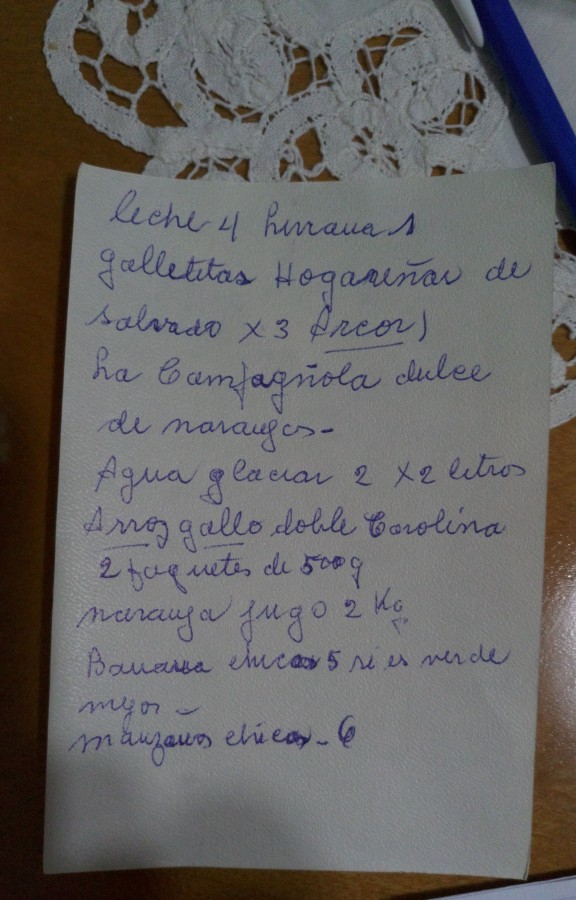 leche 4 herrana 1
galletitas Hogareñas de
salvado x 3 Arcor)
La Campagñola dulce
de naranjas-
Agua glaciar 2 x 2 litros
Arroz gallo doble Carolina
2 paquetes de 500g
naranja jugo 2 Kg
Banana chicas 5 si es verde
mejor -
manzanas chicas - 6